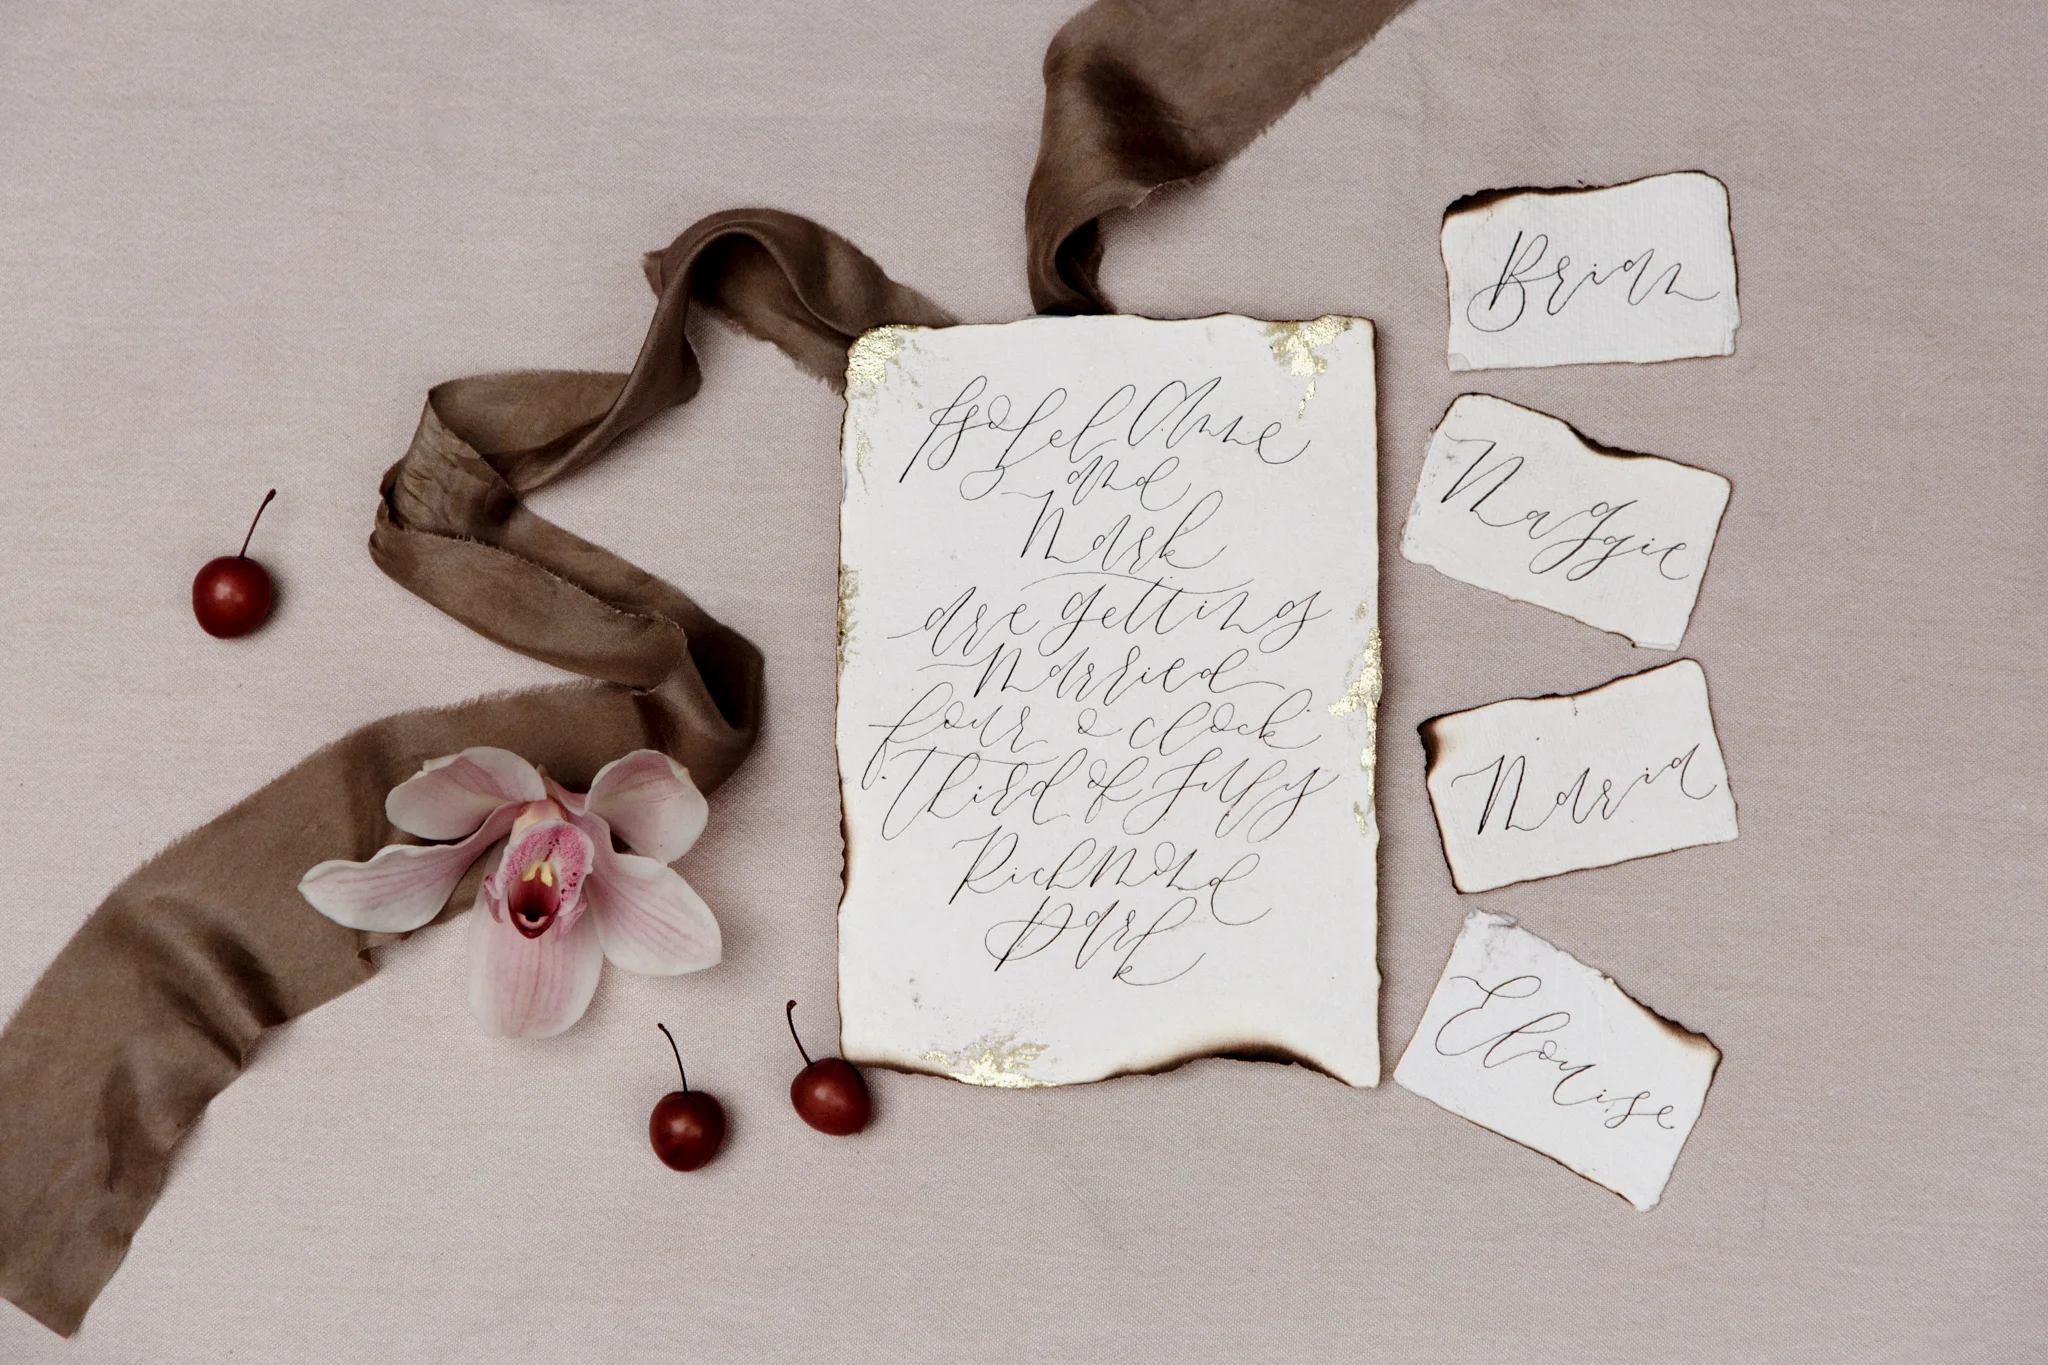 Isobel Anne
and
Mark
are getting
Married
four o clock
Third of July
Richmond
Park
Brian
Maggie
Maria
Elouise